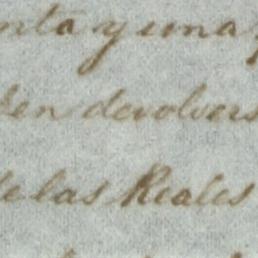 nta y una
den devolvers
de las Reales